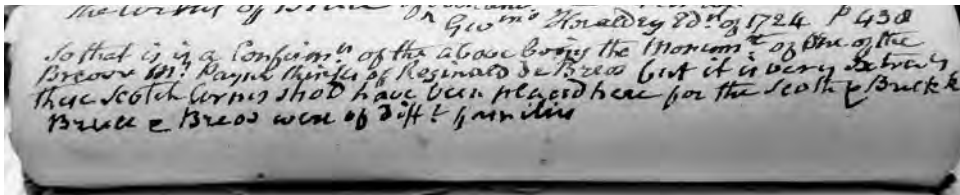 The Arms of Bruce of
Gwmo Heraldry Edn. of 1724 P 438
So that is is a Confirmn of the above being the Monumt of One of the
Breose Mr. Payne thinks of Reginald de Breos but it is very
these Scotch Arms shod have been placed here for the Scoth &
Bruce & Breos were of difft families